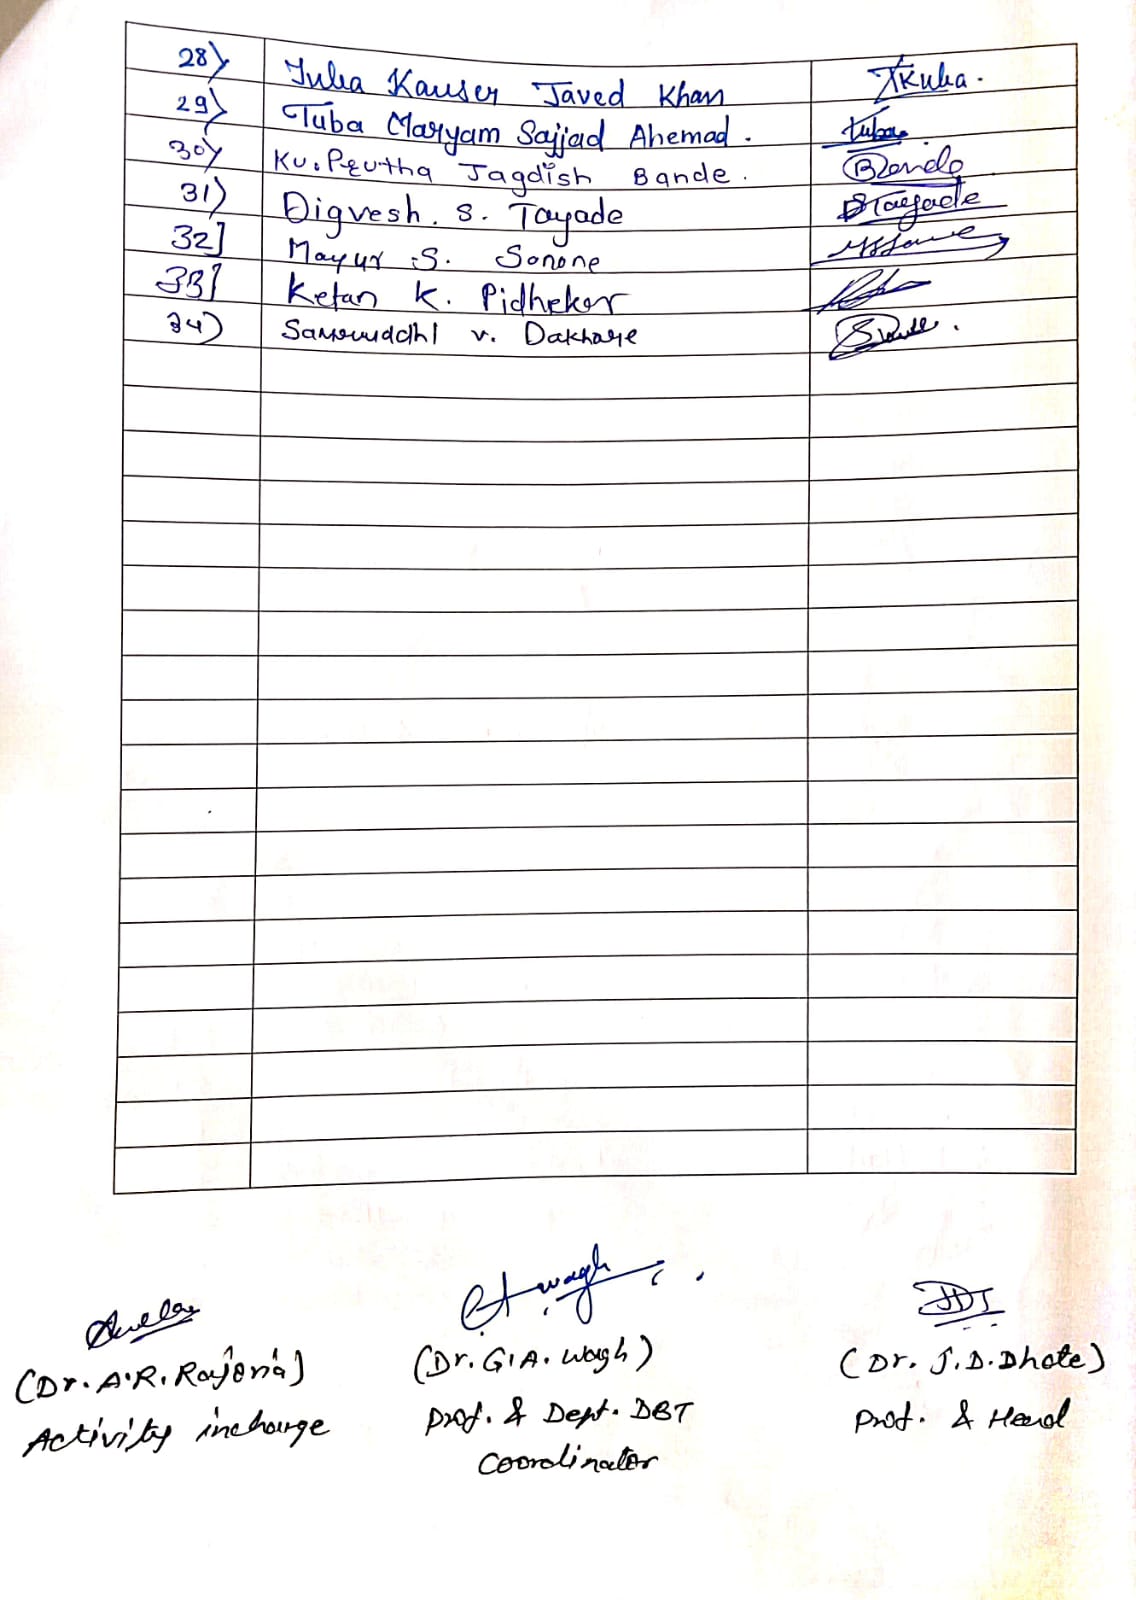 28) Tuba Kauser Javed Khan Tkuba.
29) Tuba Maryam Sajjad Ahemad. tuba
30) Ku. Prutha Jagdish Bande. Bande
31) Digvesh. S. Tayade STayade
32] Mayur .S. Sonone
33] Ketan K. Pidheker
34) Samruddhi v. Dakhare
(Dr. A.R. Rajoria) (Dr. G.A. Wagh) (Dr. J.D. Dhote)
Activity incharge Prof. & Dept. DBT Prof. & Head
Coordinator